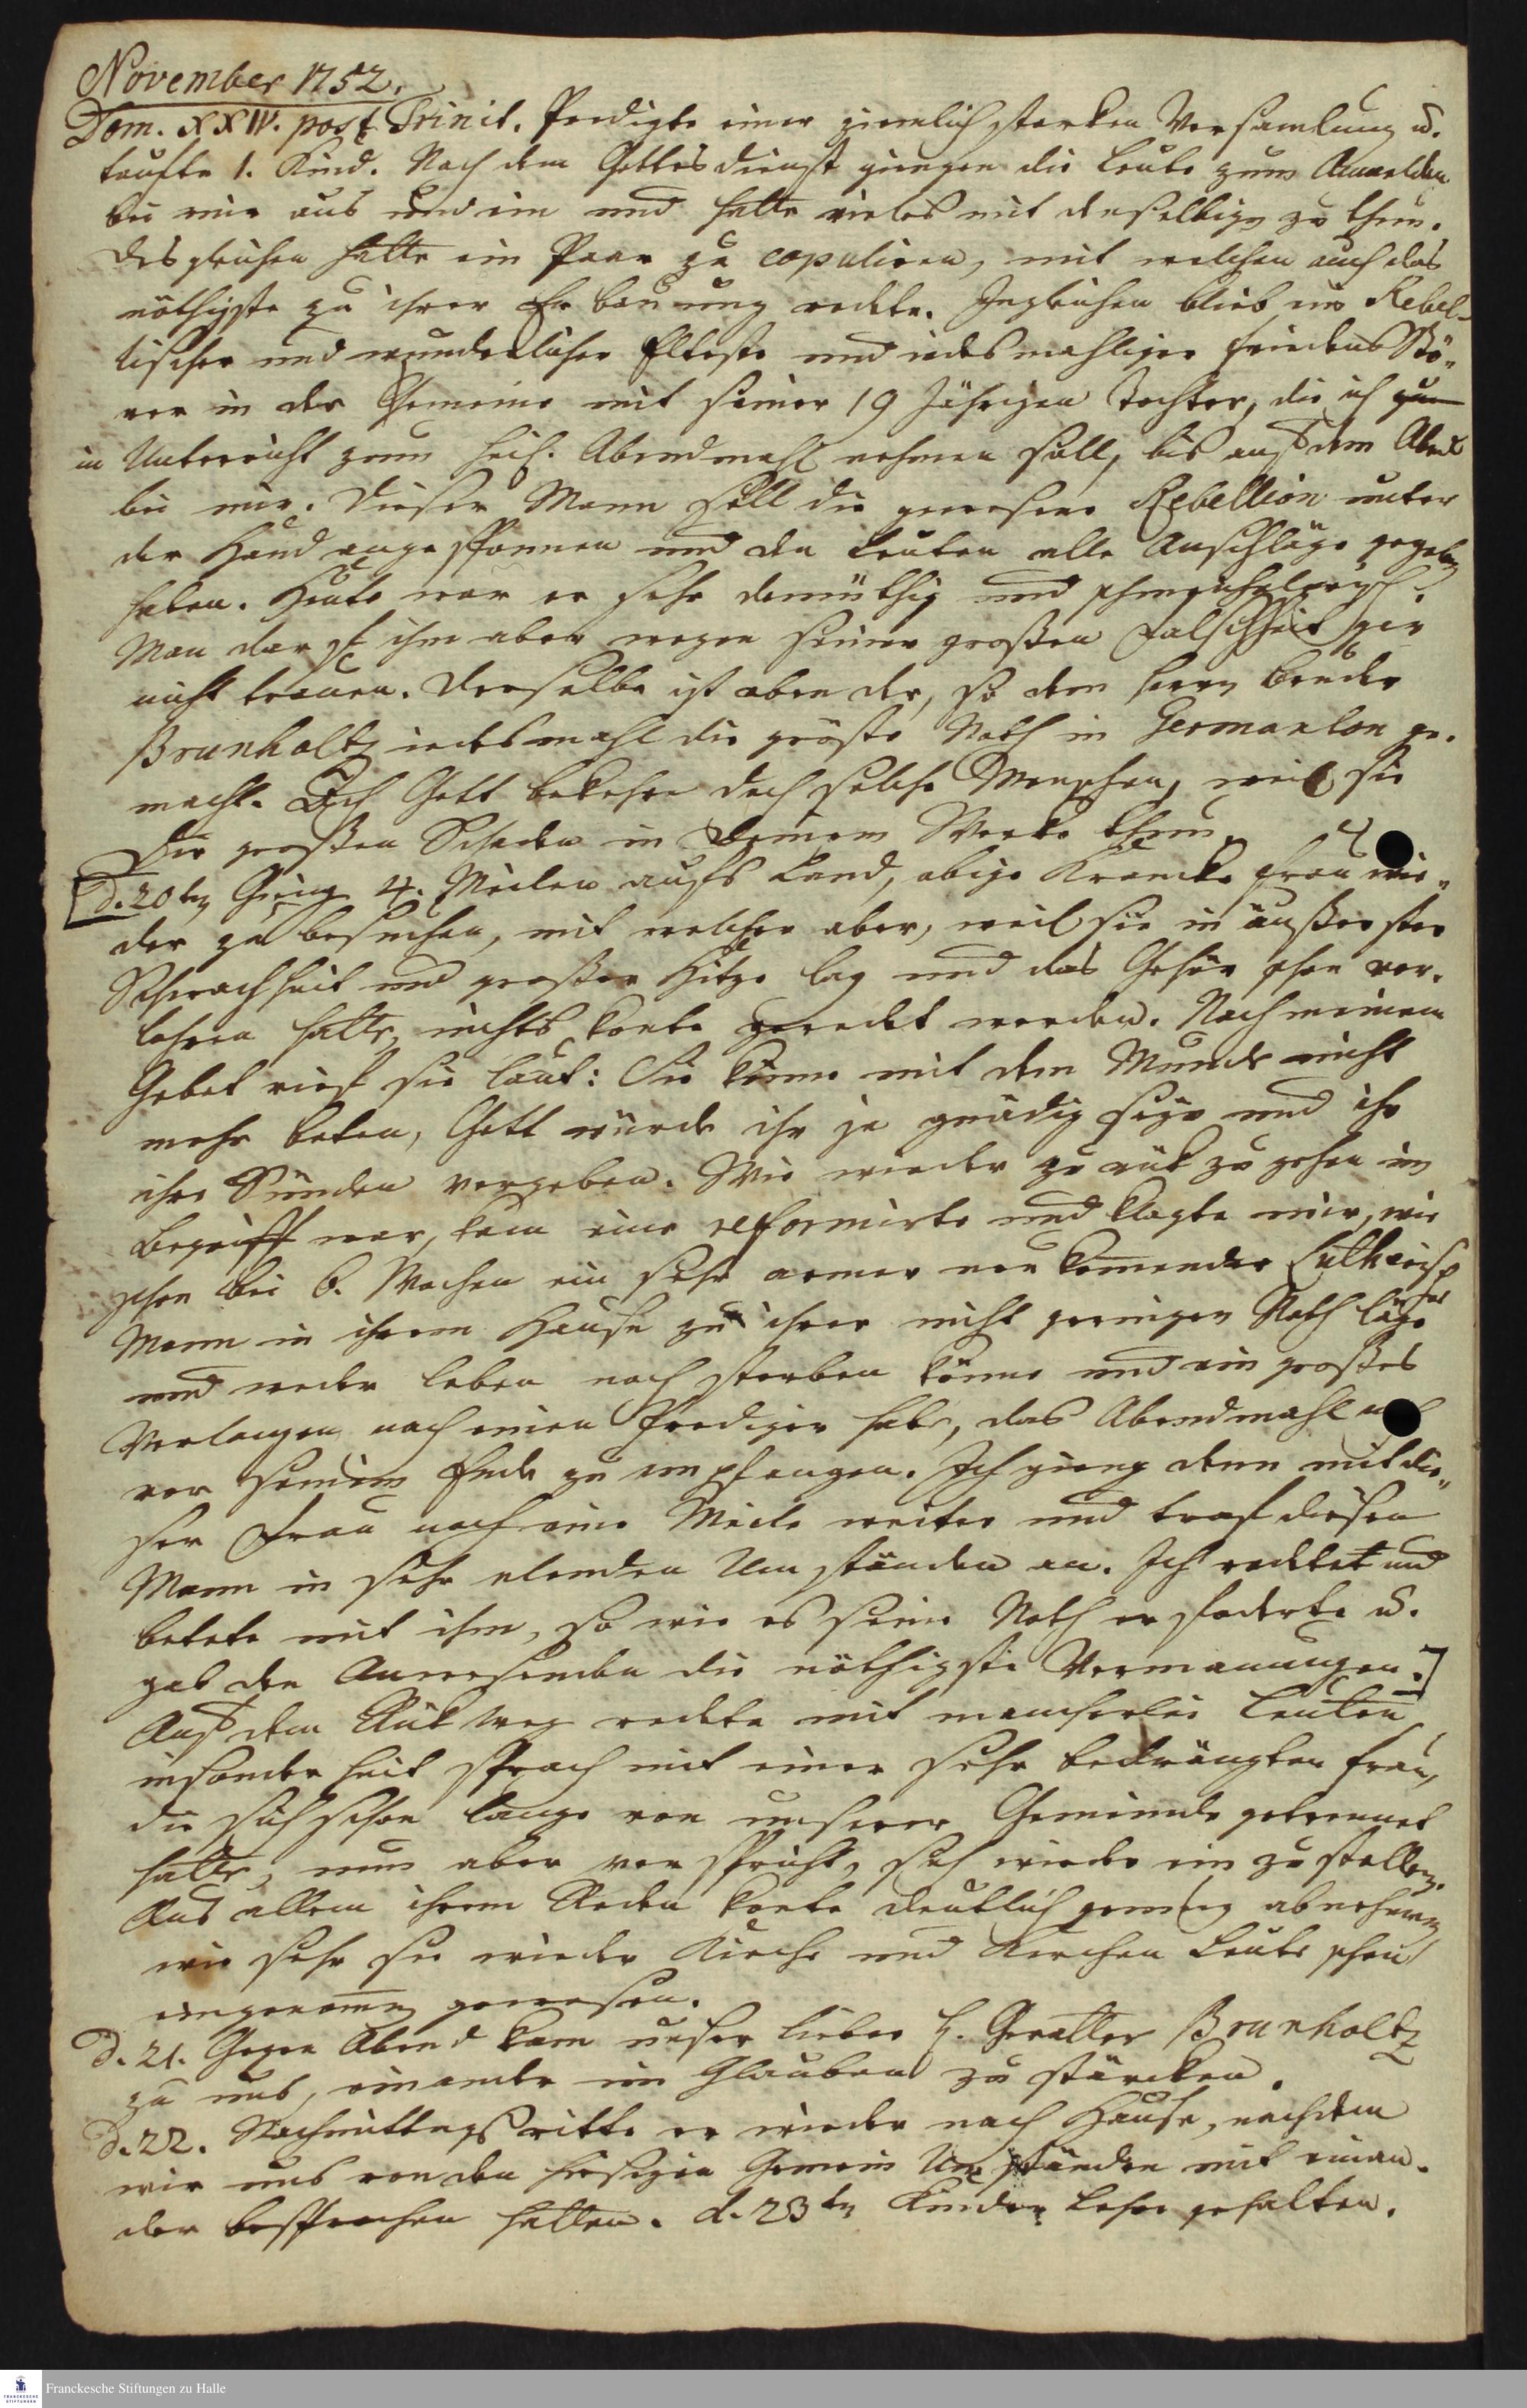 November 1752.
Dom. XXIV. post Trinit. Predigte einer ziemlich starken Versamlung u.
taufte 1. Kind. Nach dem Gottesdienst giengen die Leute zum Anmelden
bei mir aus und ein und hatte vieles mit denselbigen zu thun.
Desgleichen hatte ein Paar zu copuliren, mit welchen auch das
nöthigste zu ihrer Erbauung redete. Ingleichen blieb ein Rebel-
lischer und wunderlicher Elteste und iedesmahliger Friedens Stö-
rer in der Gemeine mit seiner 19 Jährigen Tochter, die ich zum
in Unterricht zum heil. Abendmahl nehmen soll, bis auf dem Abend
bei mir. Dieser Mann soll die gewesene Rebellion unter
der Hand angesponnen und den Leuten alle Anschläge gegeben
haben. Heute war er sehr demüthig und schmeichelerisch.
Man darf ihm aber wegen seiner großen Falschheit gar
nicht trauen. Derselbe ist eben der, so dem Herrn Bruder
Brunholtz iedesmahl die gröste Noth in Germanton ge-
macht. Ach Gott bekehre doch solche Menschen, weil sie
Dir großen Schaden in Deinem Werke thun.
d. 20ten Gieng 4. Meilen aufs Land, obige Krancke Frau wie-
der zu besuchen, mit welcher aber, weil sie in äußerster
Schwachheit und großer Hitze lag und das Gehör schon ver-
lohren hatte, nichts konte geredet werden. Nach meinem
Gebet rief sie laut: Sie könne mit dem Munde nicht
mehr beten, Gott würde ihr ja gnädig seyn und ihr
ihre Sünden vergeben. Wie wieder zurük zu gehen im
Begriff war, kam eine reformirte und klagte mir, wie
schon bei 6. Wochen ein sehr armer neukomender Lutherischer
Mann in ihrem Hause zu ihrer nicht geringen Noth läge
und weder leben noch sterben könne und ein großes
Verlangen nach einen Prediger habe, das Abendmahl
vor seinem Ende zu empfangen. Ich gieng denn mit die-
ser Frau noch eine Meile weiter und traf diesen
Mann in sehr elenden Umständen an. Ich redete und
betete mit ihm, so wie es seine Noth erfoderte u.
gab den Anwesenden die nöthigste Vermanungen.
Auf dem Rükweg redete mit mancherlei Leuten
insonderheit sprach mit einer sehr bedrängten Frau,
die sich schon lange von unserer Gemeinde getrennet
hatte, nun aber verspricht, sich wieder einzustellen.
Aus allem ihrem Reden konte deutlich genug abnehmen
wie sehr sie wieder Kirche und Kirchen Leute schon
eingenomen gewesen.
d. 21. Gegen Abend kam unser lieber H. Gevatter Brunholtz
zu uns, einander im Glauben zu stärcken.
d. 22. Nachmittags ritte er wieder nach Hause, nachdem
wir uns von den hiesigen Gemein Umständen mit einan-
der besprochen hatten. d. 23ten Kinder Lehre gehalten.
Franckesche Stiftungen zu Halle
FRANCKESCHE
STIFTUNGEN